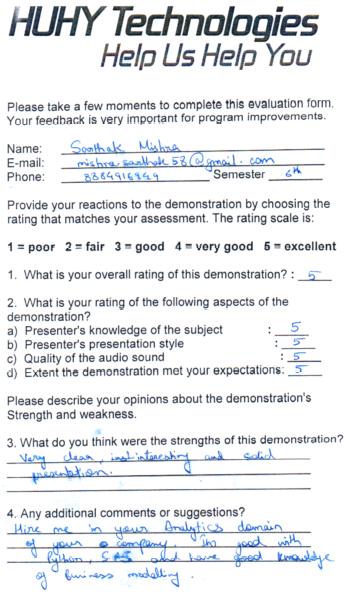 HUHY Technologies
Help Us Help You
Please take a few moments to complete this evaluation form.
Your feedback is very important for program improvements.
Name: Sarthak Mishra
E-mail: mishra.sarthak58@gmail.com
Phone: Semester 6th
Provide your reactions to the demonstration by choosing the
rating that matches your assessment. The rating scale is:
1 = poor 2 = fair 3 = good 4 = very good 5 = excellent
1. What is your overall rating of this demonstration? : 5
2. What is your rating of the following aspects of the
demonstration?
a) Presenter's knowledge of the subject : 5
b) Presenter's presentation style : 5
c) Quality of the audio sound : 5
d) Extent the demonstration met your expectations: 5
Please describe your opinions about the demonstration's
Strength and weakness.
3. What do you think were the strengths of this demonstration?
Very clear, and solid
presentation.
4. Any additional comments or suggestions?
Hire me in your Analytics domain
of your company. I'm good with
Python, and have good knowledge
of business modelling.